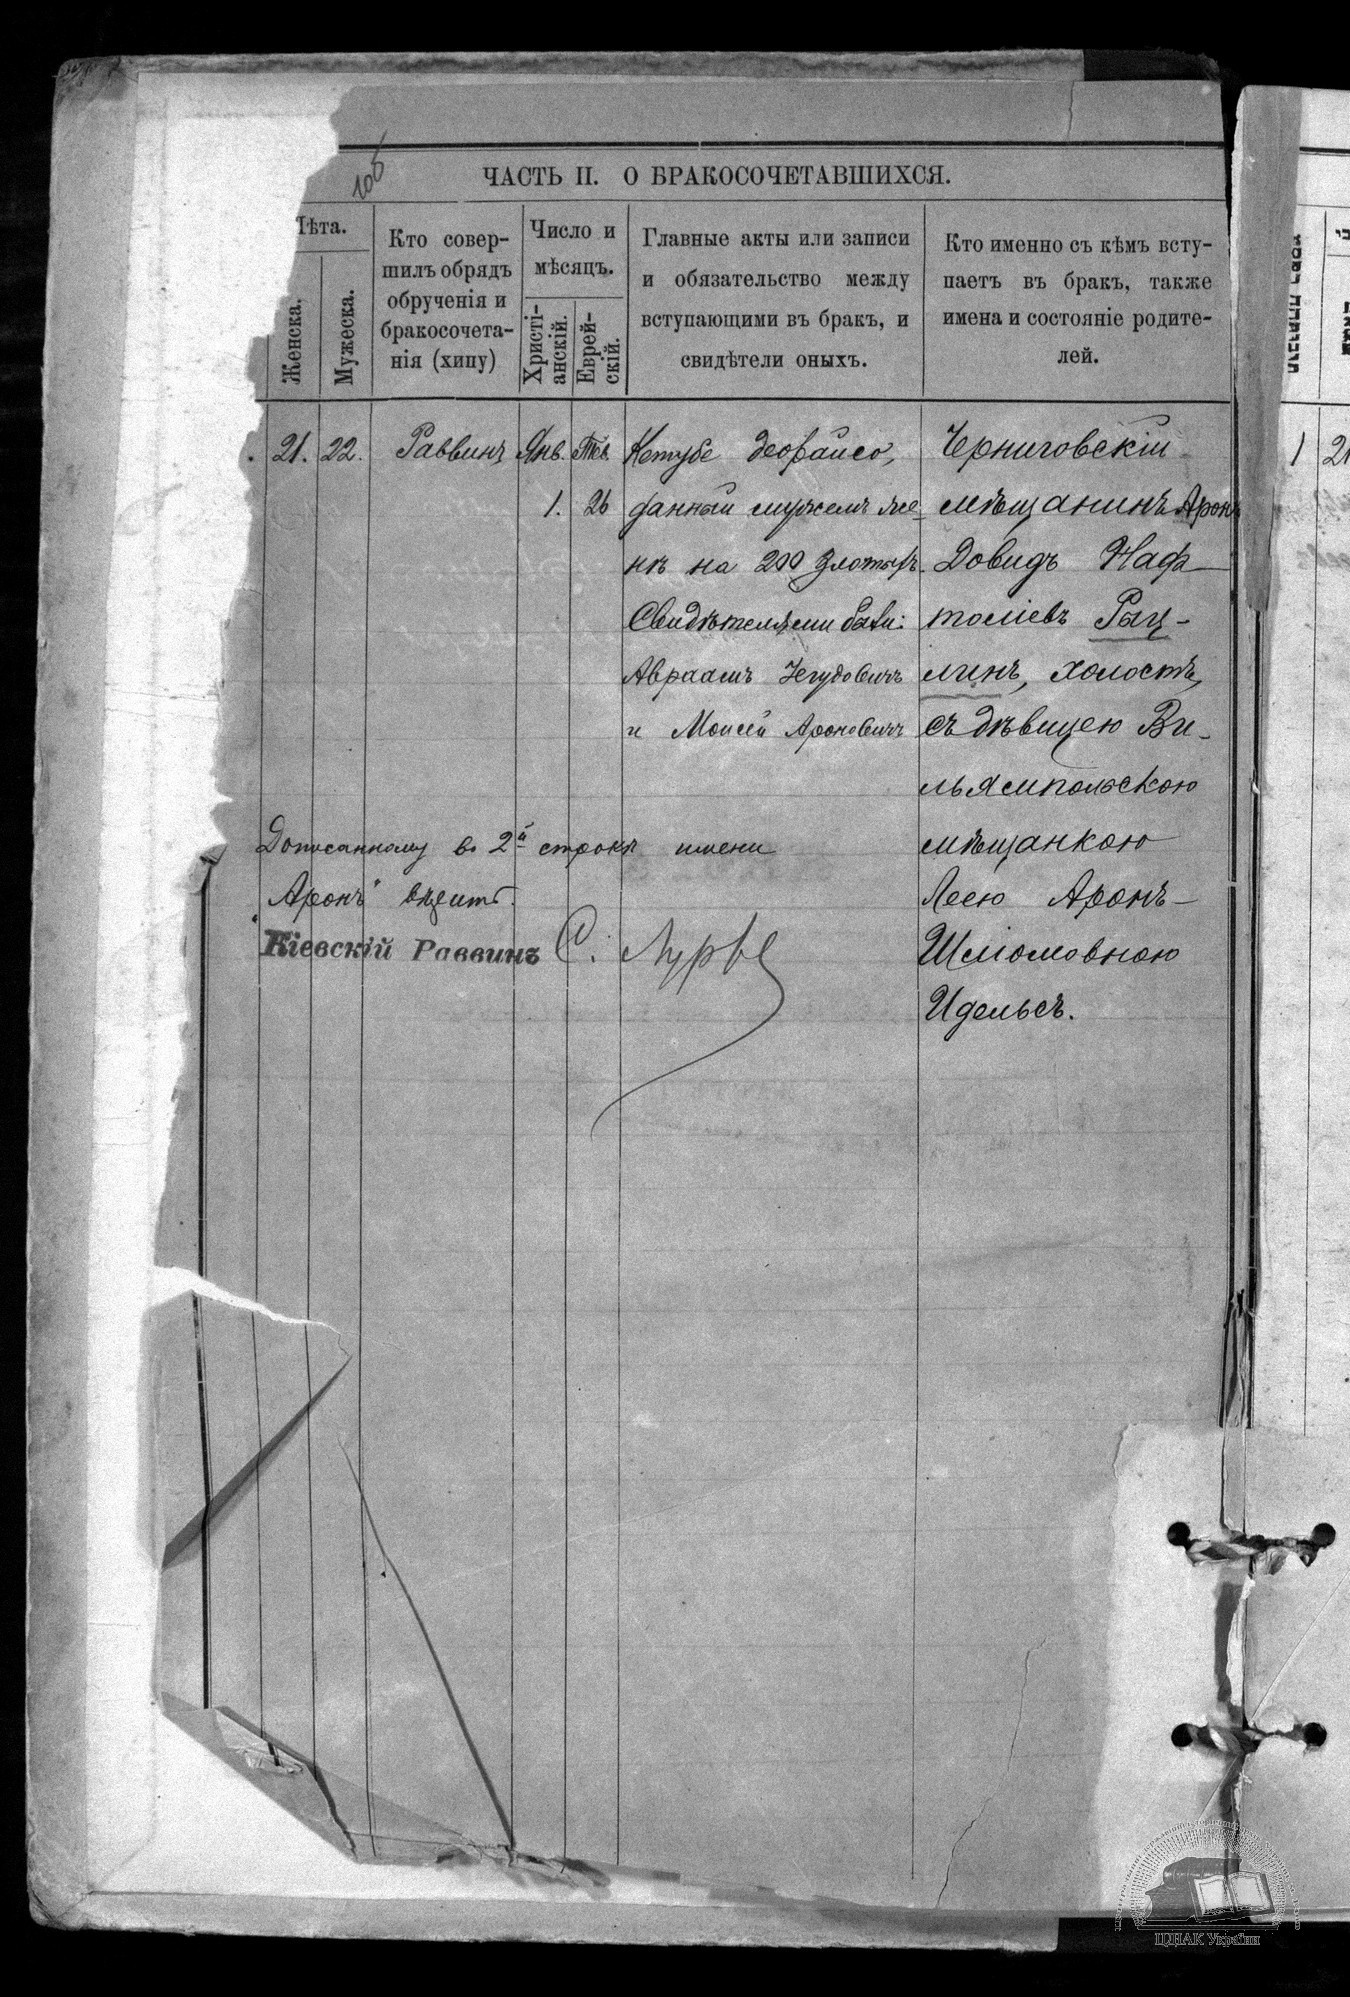 106
ЧАСТЬ II. О БРАКОСОЧЕТАВШИХСЯ.
Лѣта.
Женска.
Мужеска.
Кто совер-
шилъ обрядъ
обрученія и
бракосочета-
нія (хипу)
Число и
мѣсяцъ.
Христі-
анскій.
Еврей-
скій.
Главные акты или записи
и обязательство между
вступающими въ бракъ, и
свидѣтели оныхъ.
Кто именно съ кѣмъ всту-
паетъ въ бракъ, также
имена и состояніе родите-
лей.
21. 22. Раввинъ Янв. Тев.
1. 26
Кетубе деорайсо,
данный мужемъ же-
нѣ на 200 злотыхъ.
Свидѣтелями были:
Авраамъ Іегудовичъ
и Моисей Ароновичъ
Черниговскій
мѣщанинъ Аронъ
Довидъ Наф-
толіевъ Рыц-
линъ, холостъ,
съ дѣвицею Ви-
льямпольскою
мѣщанкою
Леею Аронъ-
Шліомовною
Идельсъ.
Дописанному во 2й строкѣ имени
"Аронъ" вѣрить.
Кіевскій Раввинъ С. Лурье
1
ЦДІАК України